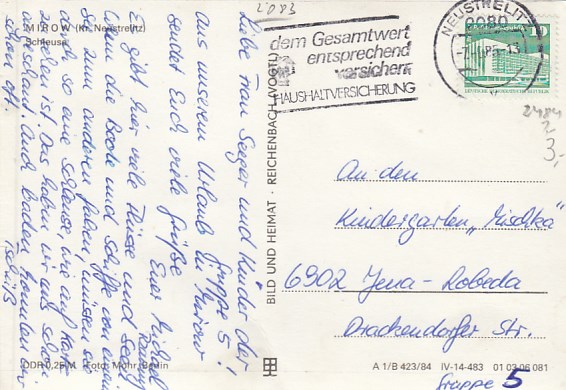 MIROW (Kr. Neustrelitz)
Schleuse
Liebe Frau Seeger und Kinder der
Gruppe 5!
Aus unserem Urlaub in Mirow
sendet Euch viele Grüße
Euer Michael
Es gibt hier viele Flüsse und Seen.
Damit Boote und Schiffe von einem
zum anderen fahren, müssen sie
durch so eine Schleuse, wie auf Karte
zu sehen ist. Das haben wir uns schon
angeschaut. Auch baden konnten wir
schon oft.
Tschüß
DDR 0,25 M Foto: Mohr, Berlin
BILD UND HEIMAT · REICHENBACH (VOGTL)
2083
dem Gesamtwert
entsprechend
versichern
HAUSHALTVERSICHERUNG
NEUSTRELITZ
2080
10
DEUTSCHE DEMOKRATISCHE REPUBLIK
2484
2
3,-
An den
Kindergarten „Mischka"
6902 Jena-Lobeda
Drackendorfer Str.
Gruppe 5
A 1/B 423/84 IV-14-483 01 03 06 081